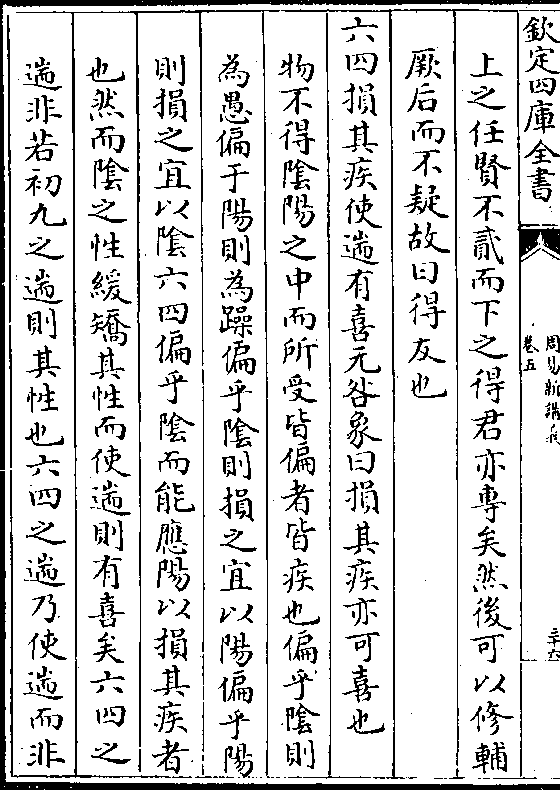 欽定四庫全書
周易新講義
卷五
三十六
上之任賢不貳而下之得君亦專矣然後可以修輔
厥后而不疑故曰得友也
六四損其疾使遄有喜无咎象曰損其疾亦可喜也
物不得陰陽之中而所受皆偏者皆疾也偏乎陰則
為愚偏于陽則為躁偏乎陰則損之宜以陽偏乎陽
則損之宜以陰六四偏乎陰而能應陽以損其疾者
也然而陰之性緩矯其性而使遄則有喜矣六四之
遄非若初九之遄則其性也六四之遄乃使遄而非